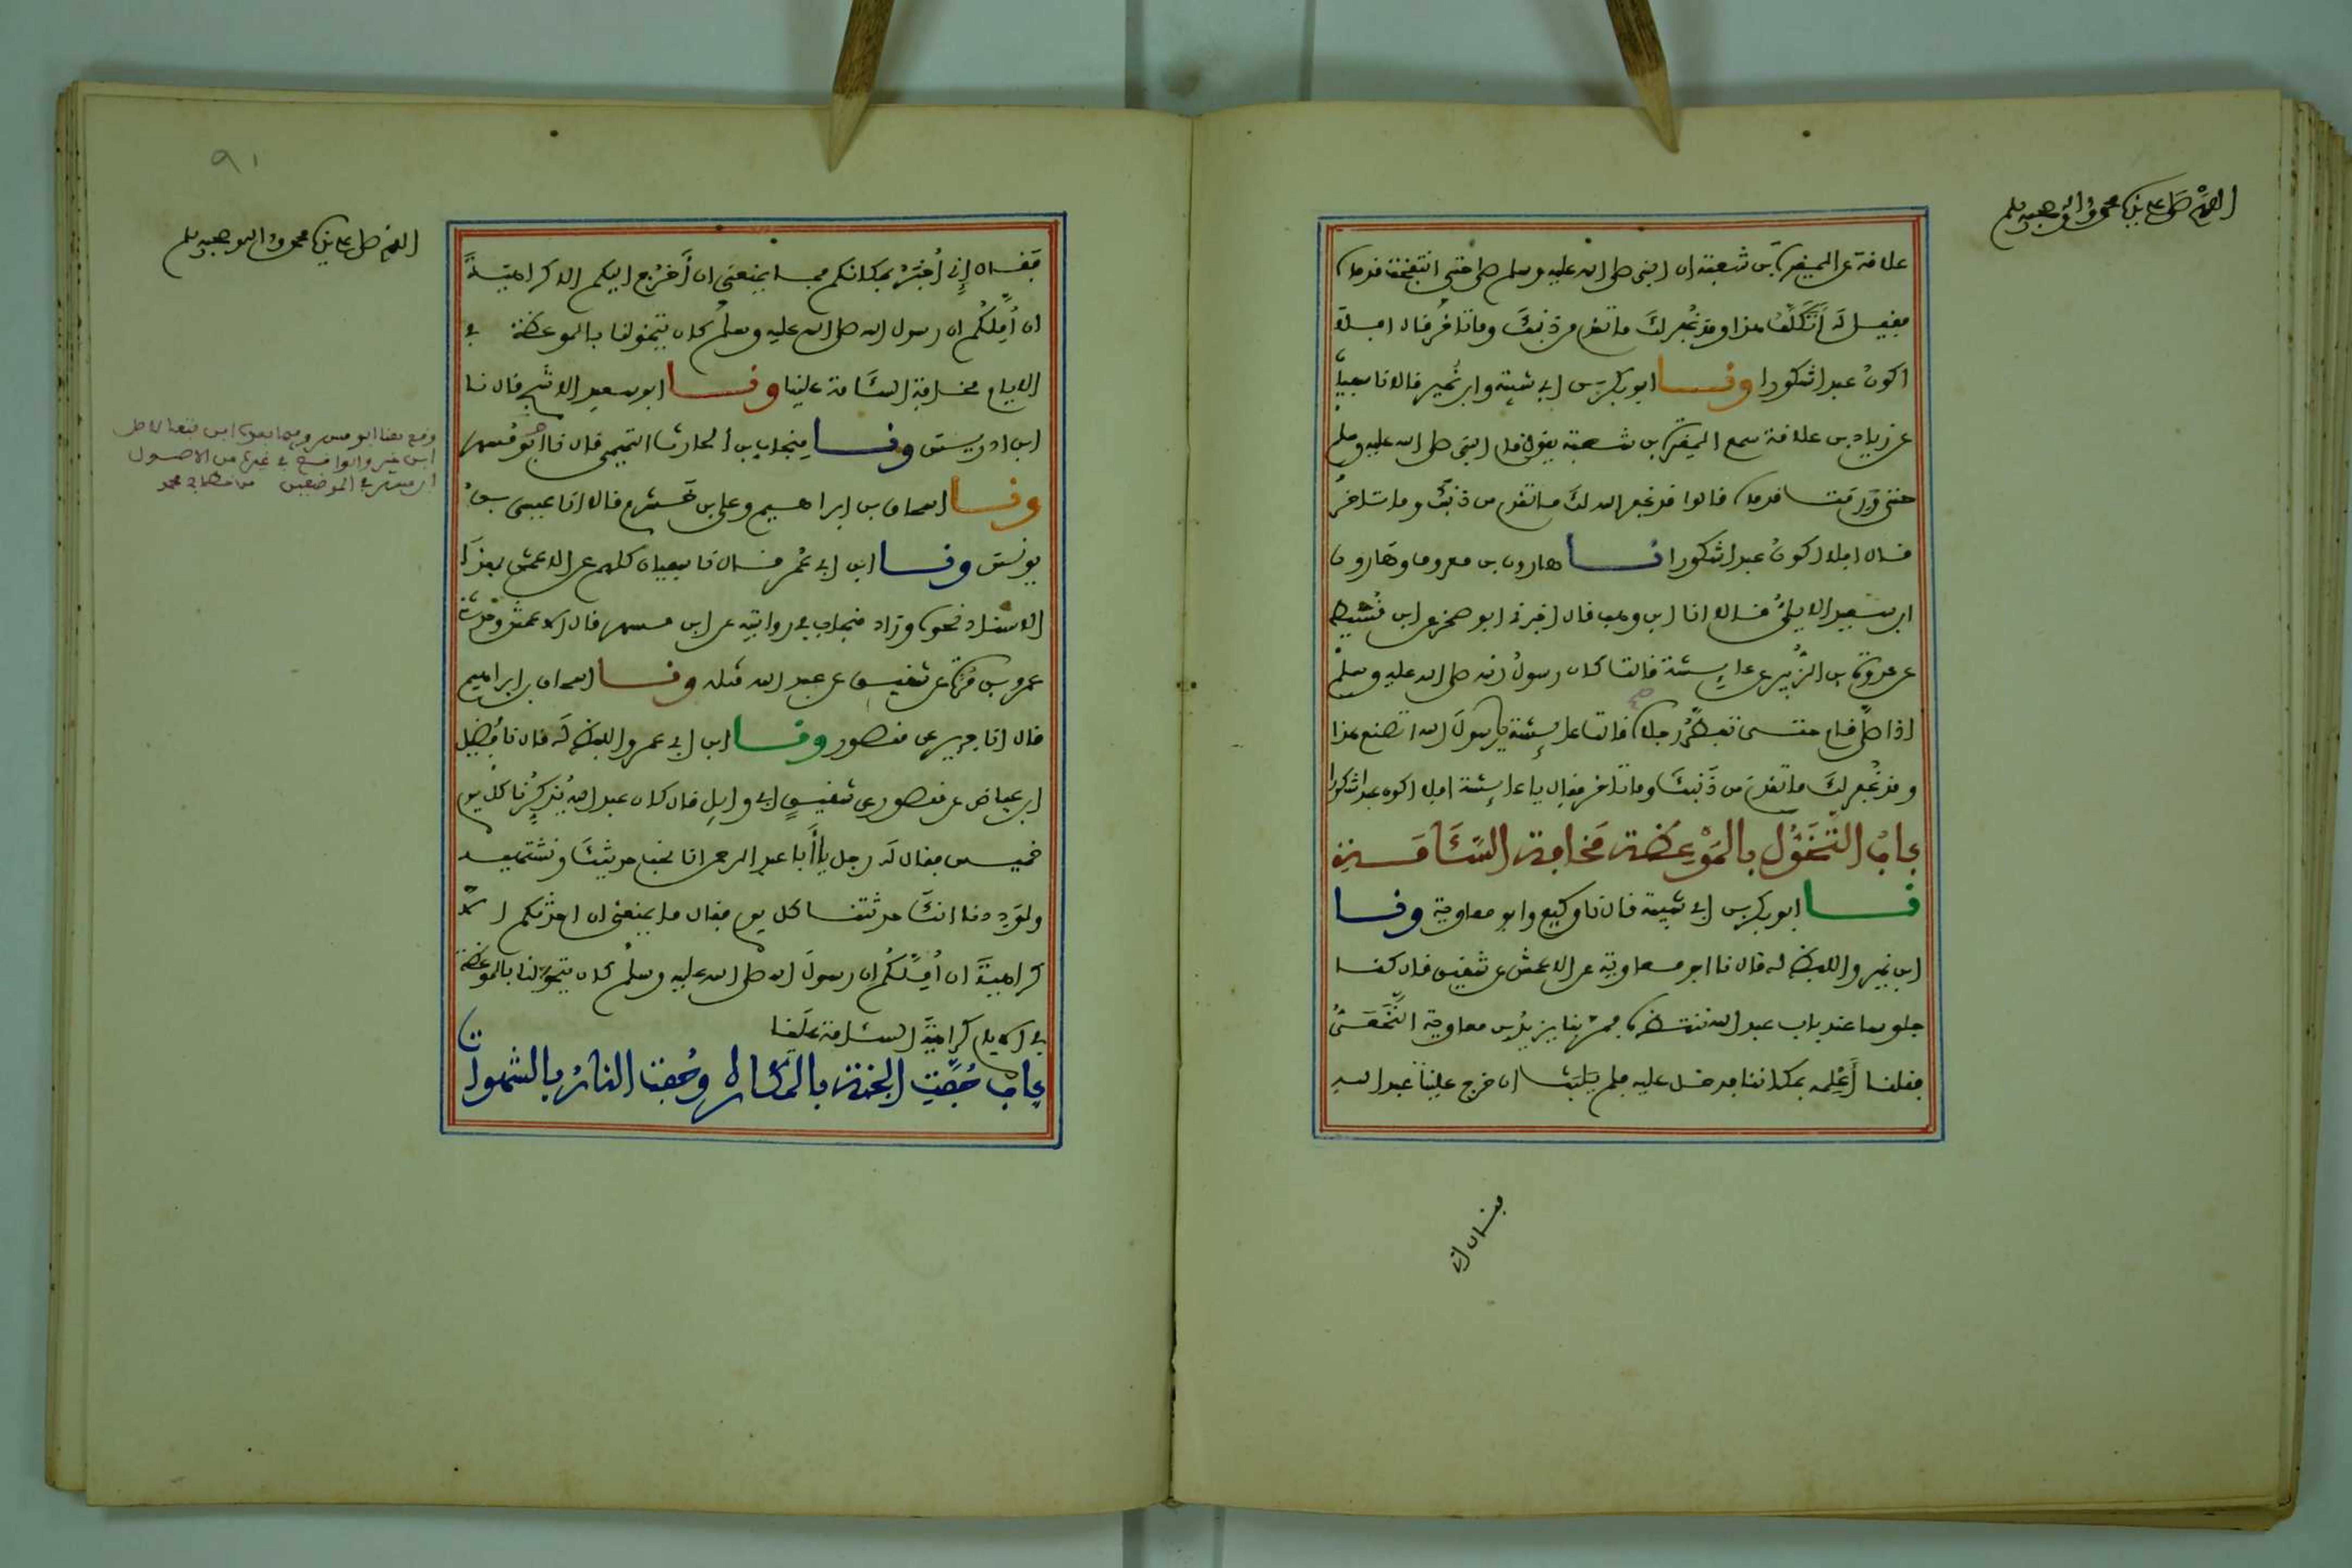 اللهم صل على نبينا محمد وآله وصحبه وسلم
علاقة عن المغيرة بن شعبة ان النبي صلى الله عليه وسلم صلى حتى انتفخت قدماه
فقيل له أَتَكَلَّفُ هذا وقد غُفر لك ما تقدم من ذنبك وما تأخر قال افلا
اكونُ عبدا شكورا ونا ابو بكر بن ابي شيبة وابن نُمير قالا نا سفيان
عن زياد بن علاقة سمع المغيرة بن شعبة يقول قام النبي صلى الله عليه وسلم
حتى وَرِمَت قدماه قالوا قد غفر الله لك ما تقدم من ذنبك وما تأخر
قال افلا اكونُ عبدا شكورا نا هارون بن معروف وهارون
ابن سعيد الايلي قالا انا ابن وهب قال اخبرني ابو صخر عن ابن قُسَيط
عن عروة بن الزُّبير عن عايشة قالت كان رسولُ الله صلى الله عليه وسلم
اذا صلى قام حتى تفطَّر رجلاه قالت عايشة يا رسولَ الله اتصنع هذا
وقد غُفر لكَ ما تقدم من ذَنبكَ وما تأخر فقال يا عايشة افلا اكون عبدا شكورا
بابُ التَّخَوُّل بالمَوْعِظة مَخافة السَّئَامَة
نا ابو بكر بن ابي شيبة قال نا وكيع وابو معاوية ونا
ابن نمير واللفظ له قال نا ابو معاوية عن الاعمش عن شقيق قال كنا
جلوسا عند باب عبد الله ننتظره فمر بنا يزيدُ بن معاوية النَّخَعيُّ
فقلنا أَعْلِمه بمكاننا فدخل عليه فلم يَلبث ان خرج علينا عبد الله
فقال اني
اللهم صل على نبينا محمد وآله وصحبه وسلم
٩١
فَقال إِني أُخبَرُ بمكانكم فما يمنعني ان أَخرُج اليكم الا كراهيَةُ
ان أُمِلَّكُم ان رسول الله صلى الله عليه وسلم كان يتخولنا بالموعظة في
الايام مخافة السَّئامة علينا ونا ابو سعيد الاشج قال نا
ابن ادريس ونا مِنجاب بن الحارث التميمي قال نا ابو مُسهر
ونا اسحاق بن ابراهيم وعلي بن خَشرم قالا انا عيسى بن
يونس ونا ابن ابي عُمر قال نا سفيان كلهم عن الاعمش بهذا
الاسناد نحوه وزاد منجاب في روايته عن ابن مسهر قال الاعمش وحدثني
عمرو بن مُرَّة عن شقيق عن عبد الله مثله ونا اسحاق بن ابراهيم
قال انا جرير عن منصور ونا ابن ابي عمر واللفظ لَه قال نا فُضيل
ابن عياض عن منصور عن شقيقٍ ابي وايل قال كان عبد الله يُذكِّرُنا كل يوم
خميس فقال لَه رجل يا أَبا عبد الرحمن انا نحب حديثكَ ونشتهيه
ولوَدِدنا انكَ حدثتنا كل يوم فقال ما يمنعني ان احدثكم الا
كراهيةُ ان أُمِلَّكُم ان رسولَ الله صلى الله عليه وسلم كان يتخولنا بالموعظة
في الايام كراهيةَ السئامة علَينا
بابٌ حُفَّتِ الجنة بالمَكاره وحُفت النارُ بالشهوات